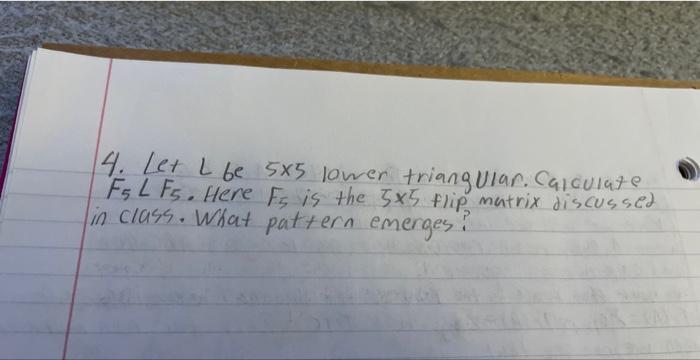 4. Let L be 5x5 lower triangular. Calculate
F5 L F5. Here F5 is the 5x5 flip matrix discussed
in class. What pattern emerges?